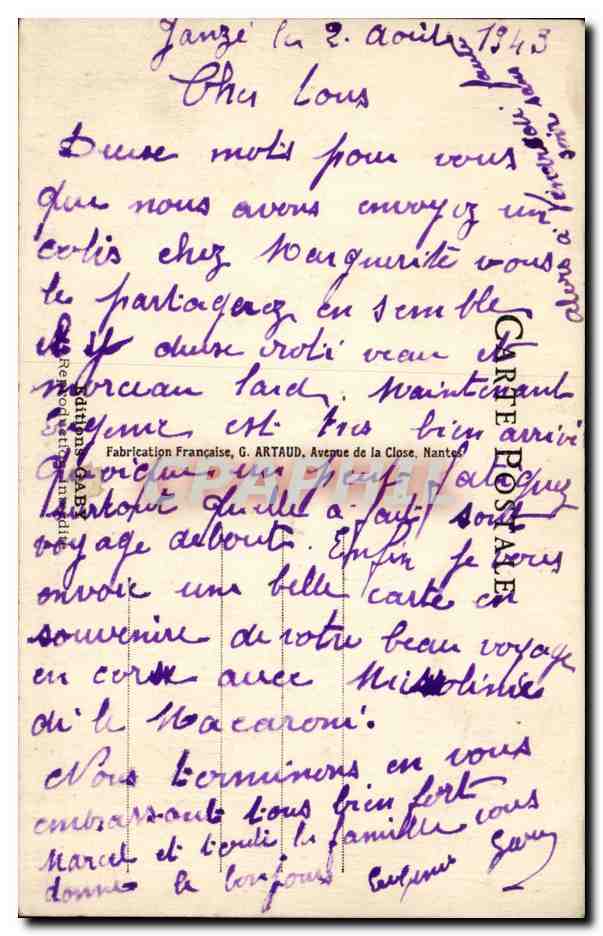 Janzé le 2. Août 1943
Cher tous
Deuse mots pour vous
que nous avons envoyez un
colis chez Marguerite vous
le partagerez en semble
il y deuse roti veau et
morceau lard. Maintenant
Eugenie est tres bien arrivé
un peut fatiguez
surtout quelle a fait sont
voyage debout. Enfin je vous
envoie une belle carte en
souvenire de votre beau voyage
en corse avec
di le Macaroni.
Nous terminons en vous
embrassant tous bien fort
Marcel et toute la famille vous
donne le bonjour Eugenie
alors à
CARTE POSTALE
Fabrication Française, G. ARTAUD, Avenue de la Close, Nantes
Editions GABY
Reproduction Interdite
CPAPHIL